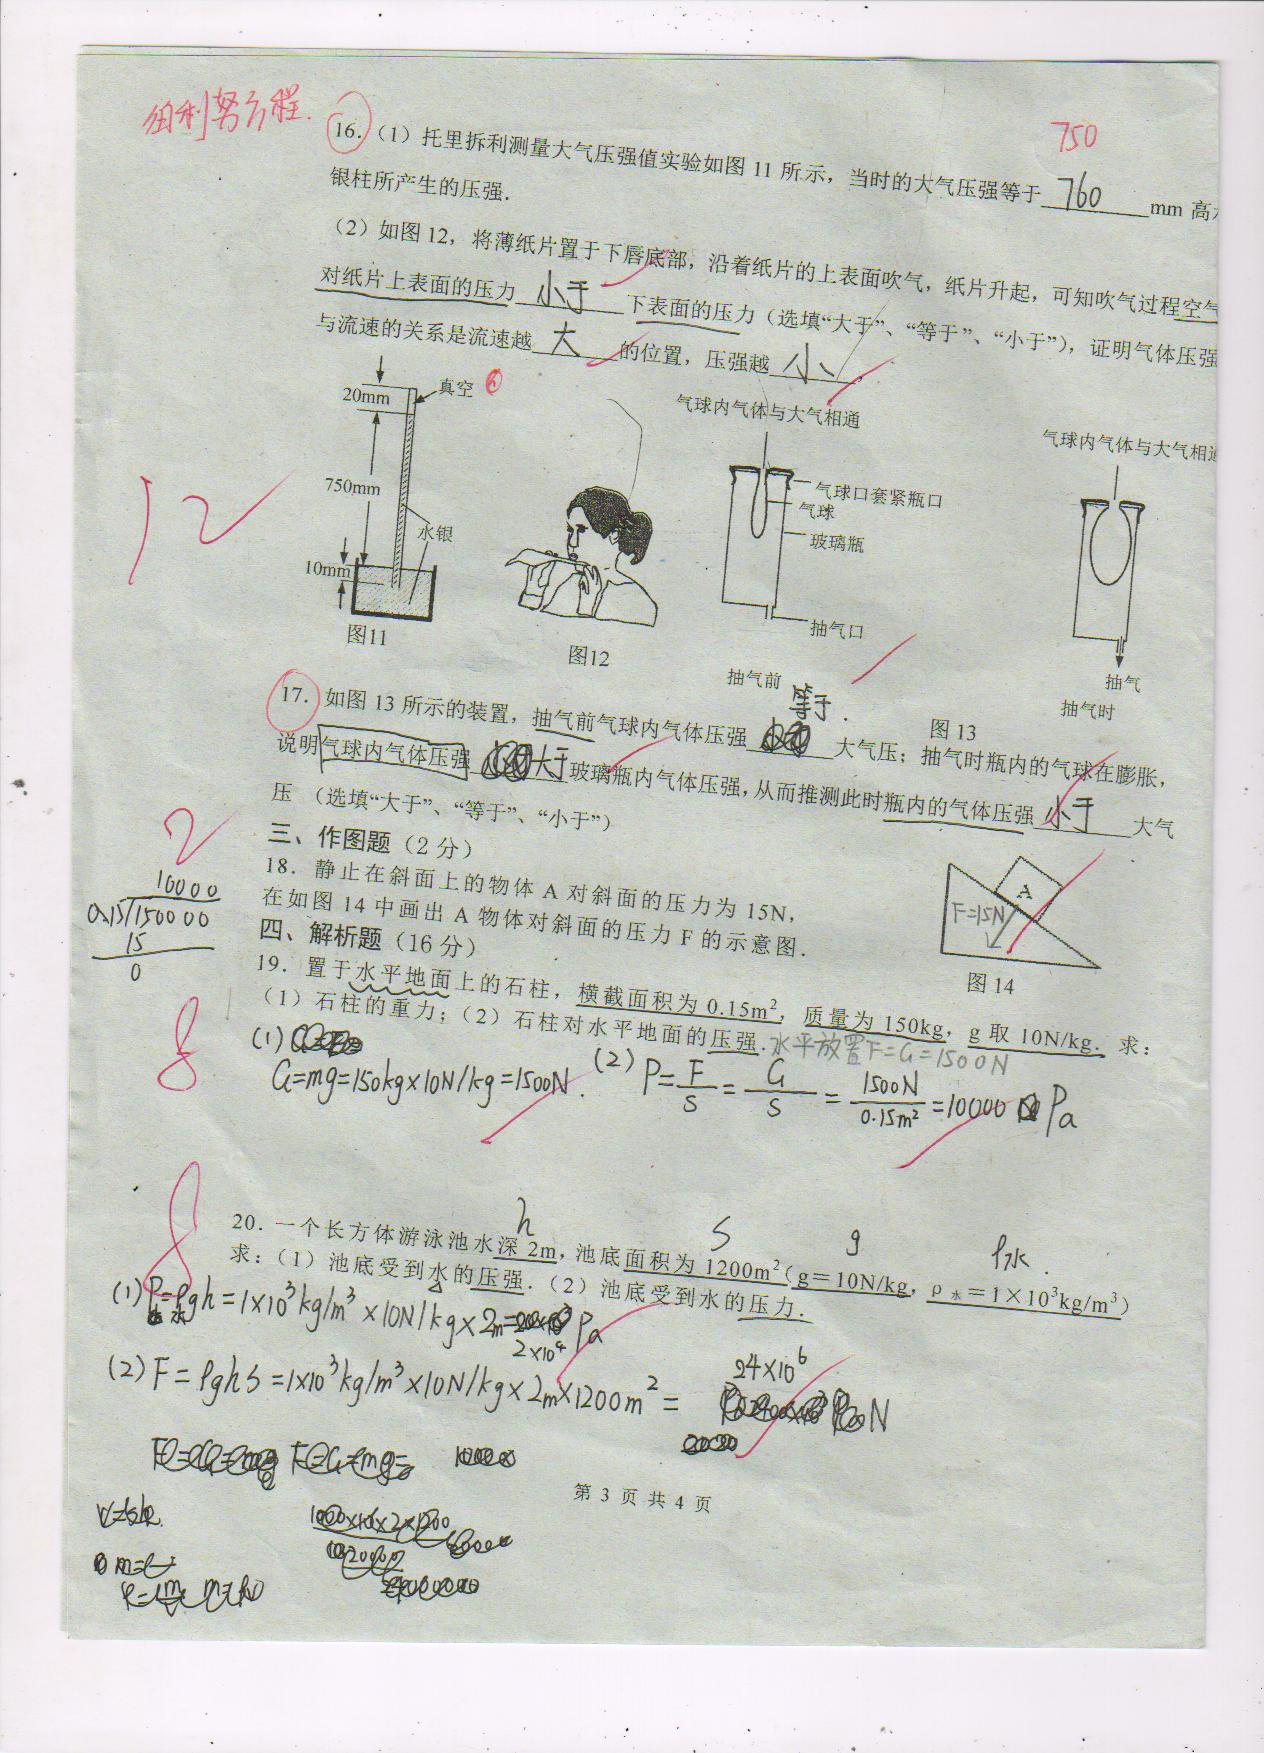 伯利努方程.
750
16.（1）托里拆利测量大气压强值实验如图 11 所示，当时的大气压强等于 760 mm 高
银柱所产生的压强.
（2）如图 12，将薄纸片置于下唇底部，沿着纸片的上表面吹气，纸片升起，可知吹气过程空气
对纸片上表面的压力 小于 下表面的压力（选填“大于”、“等于”、“小于”），证明气体压强
与流速的关系是流速越 大 的位置，压强越 小 .
20mm
真空
750mm
水银
10mm
图11
图12
气球内气体与大气相通
气球口套紧瓶口
气球
玻璃瓶
抽气口
抽气前
气球内气体与大气相通
抽气
抽气时
图 13
12
17. 如图 13 所示的装置，抽气前气球内气体压强 等于. 大气压；抽气时瓶内的气球在膨胀，
说明气球内气体压强 大于 玻璃瓶内气体压强，从而推测此时瓶内的气体压强 小于 大气
压 （选填“大于”、“等于”、“小于”）
三、作图题（2 分）
2
18. 静止在斜面上的物体 A 对斜面的压力为 15N，
在如图 14 中画出 A 物体对斜面的压力 F 的示意图.
A
F=15N
图 14
四、解析题（16 分）
10000
0.15/150000
15
0
19. 置于水平地面上的石柱，横截面积为 0.15m²，质量为 150kg，g 取 10N/kg. 求：
（1）石柱的重力；（2）石柱对水平地面的压强.水平放置F=G=1500N
8
(1)
G=mg=150kg×10N/kg=1500N.
(2) P=F/S=G/S=1500N/0.15m²=10000 Pa
8
h
S
g
ρ水.
20. 一个长方体游泳池水深 2m，池底面积为 1200m²（g＝10N/kg，ρ水＝1×10³kg/m³）
求：（1）池底受到水的压强.（2）池底受到水的压力.
(1) P水=ρ水gh=1×10³kg/m³×10N/kg×2m=2×10⁴ Pa
(2) F=ρghS=1×10³kg/m³×10N/kg×2m×1200m²=24×10⁶ N
第 3 页 共 4 页